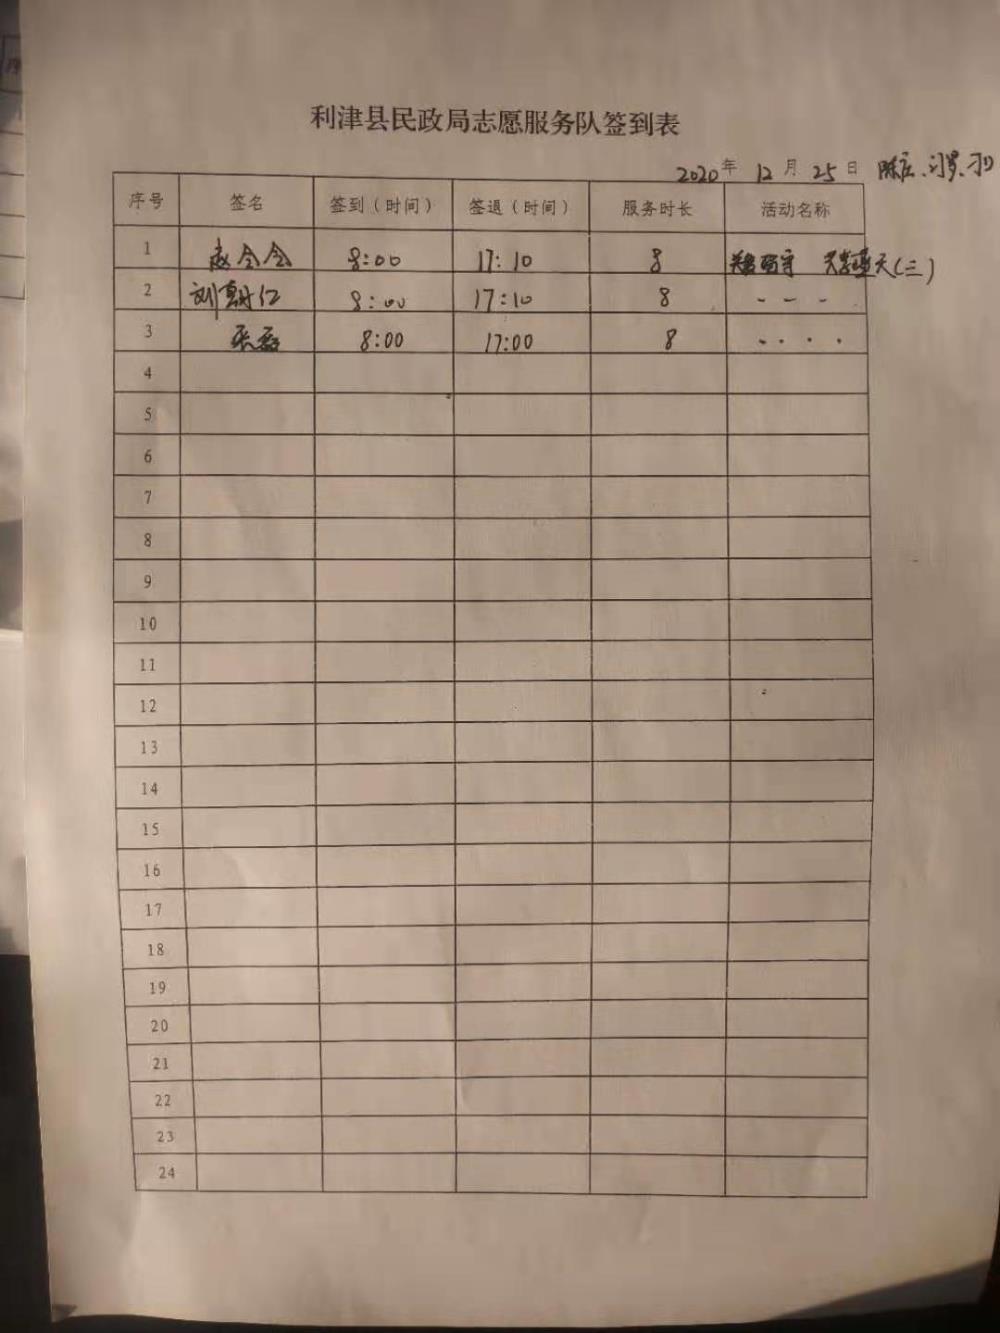 利津县民政局志愿服务队签到表
2020年 12月 25日 陈庄、
序号 签名 签到（时间） 签退（时间） 服务时长 活动名称
1 赵会会 8:00 17:10 8 天(三)
2 刘朝仁 8:00 17:10 8 - - -
3 张磊 8:00 17:00 8 . . . .
4
5
6
7
8
9
10
11
12
13
14
15
16
17
18
19
20
21
22
23
24